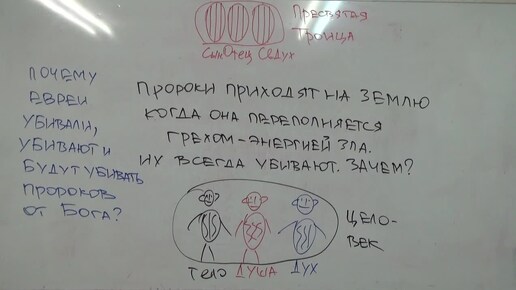 Пресвятая
Троица
Сын Отец Св Дух
Почему
евреи
убивали,
убивают и
будут убивать
пророков
от Бога?
Пророки приходят на Землю
когда она переполняется
грехом-энергией зла.
Их всегда убивают. Зачем?
тело душа дух
цело-
век